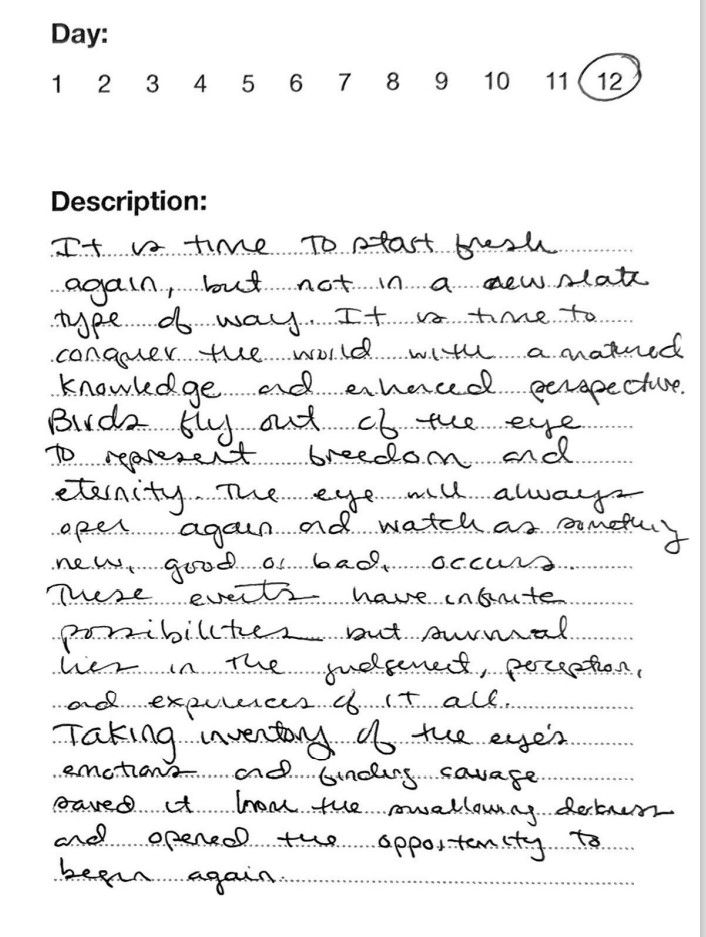 Day:
1 2 3 4 5 6 7 8 9 10 11 12
Description:
It is time to start fresh
again, but not in a new slate
type of way. It is time to
conquer the world with a matured
knowledge and enhanced perspective.
Birds fly out of the eye
to represent freedom and
eternity. The eye will always
open again and watch as something
new, good or bad, occurs.
These events have infinite
possibilities but survival
lies in the judgement, perception,
and experiences of it all.
Taking inventory of the eye's
emotions and finding savage
saved it from the swallowing darkness
and opened the opportunity to
begin again.